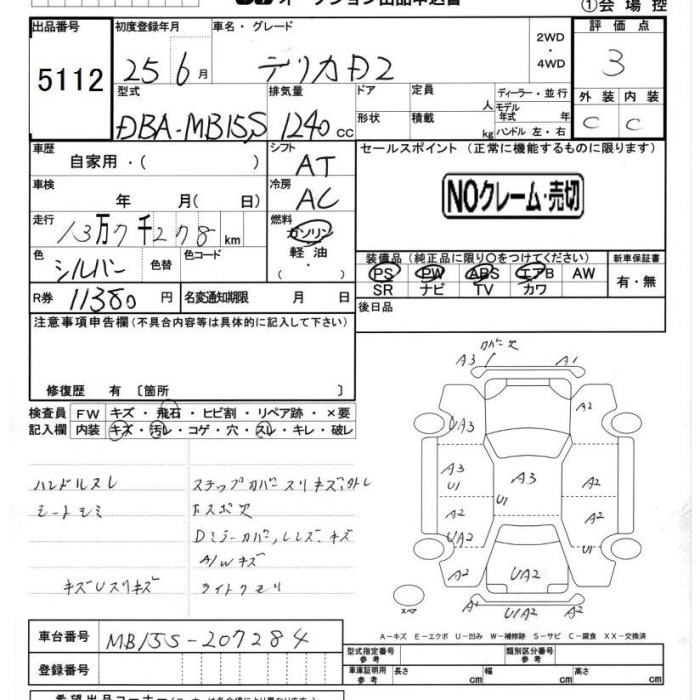 ①会場控
出品番号 初度登録年月 車名・グレード 2WD・4WD 評価点
5112 25年6月 デリカD2 3
型式 排気量 ドア 定員 人 ディーラー・並行 外装 内装
DBA-MB15S 1240cc 形状 積載 kg モデル年式 年 ハンドル 左・右 C C
車歴 自家用・( ) シフト AT セールスポイント (正常に機能するものに限ります)
車検 年 月( 日) 冷房 AC NOクレーム・売切
走行 13万7千278km 燃料 ガソリン 軽油 ・( )
色 シルバー 色替 色コード 装備品 (純正品に限り○をつけてください) 新車保証書
PS PW ABS エアB AW 有・無
SR ナビ TV カワ
R券 11380円 名変通知期限 月 日 後日品
注意事項申告欄 (不具合内容等は具体的に記入して下さい)
修復歴 有 〔箇所 〕
検査員記入欄 FW キズ・飛石・ヒビ割・リペア跡・×要
内装 キズ・汚レ・コゲ・穴・スレ・キレ・破レ
ハンドルスレ
シートシミ
キズUスリキズ
ステップカバースリキズ,外レ
Dミラーカバー,レンズ,キズ
A/Wキズ
ライトクモリ
A3 A1
A2
A3 U1 A3 A2
A2 U1 A2
UA2 U1
A2 UA2 A2
U1A2
スペア
A-キズ E-エクボ U-凹み W-補修跡 S-サビ C-腐食 XX-交換済
車台番号 MB15S-207284
登録番号
型式指定番号 参考 類別区分番号 参考
車庫証明用 参考 長さ cm 幅 cm 高さ cm